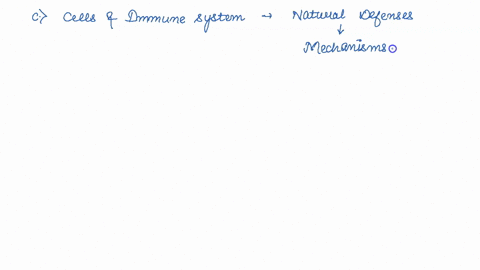 c) Cells & Immune system → Natural Defenses
↓
Mechanisms